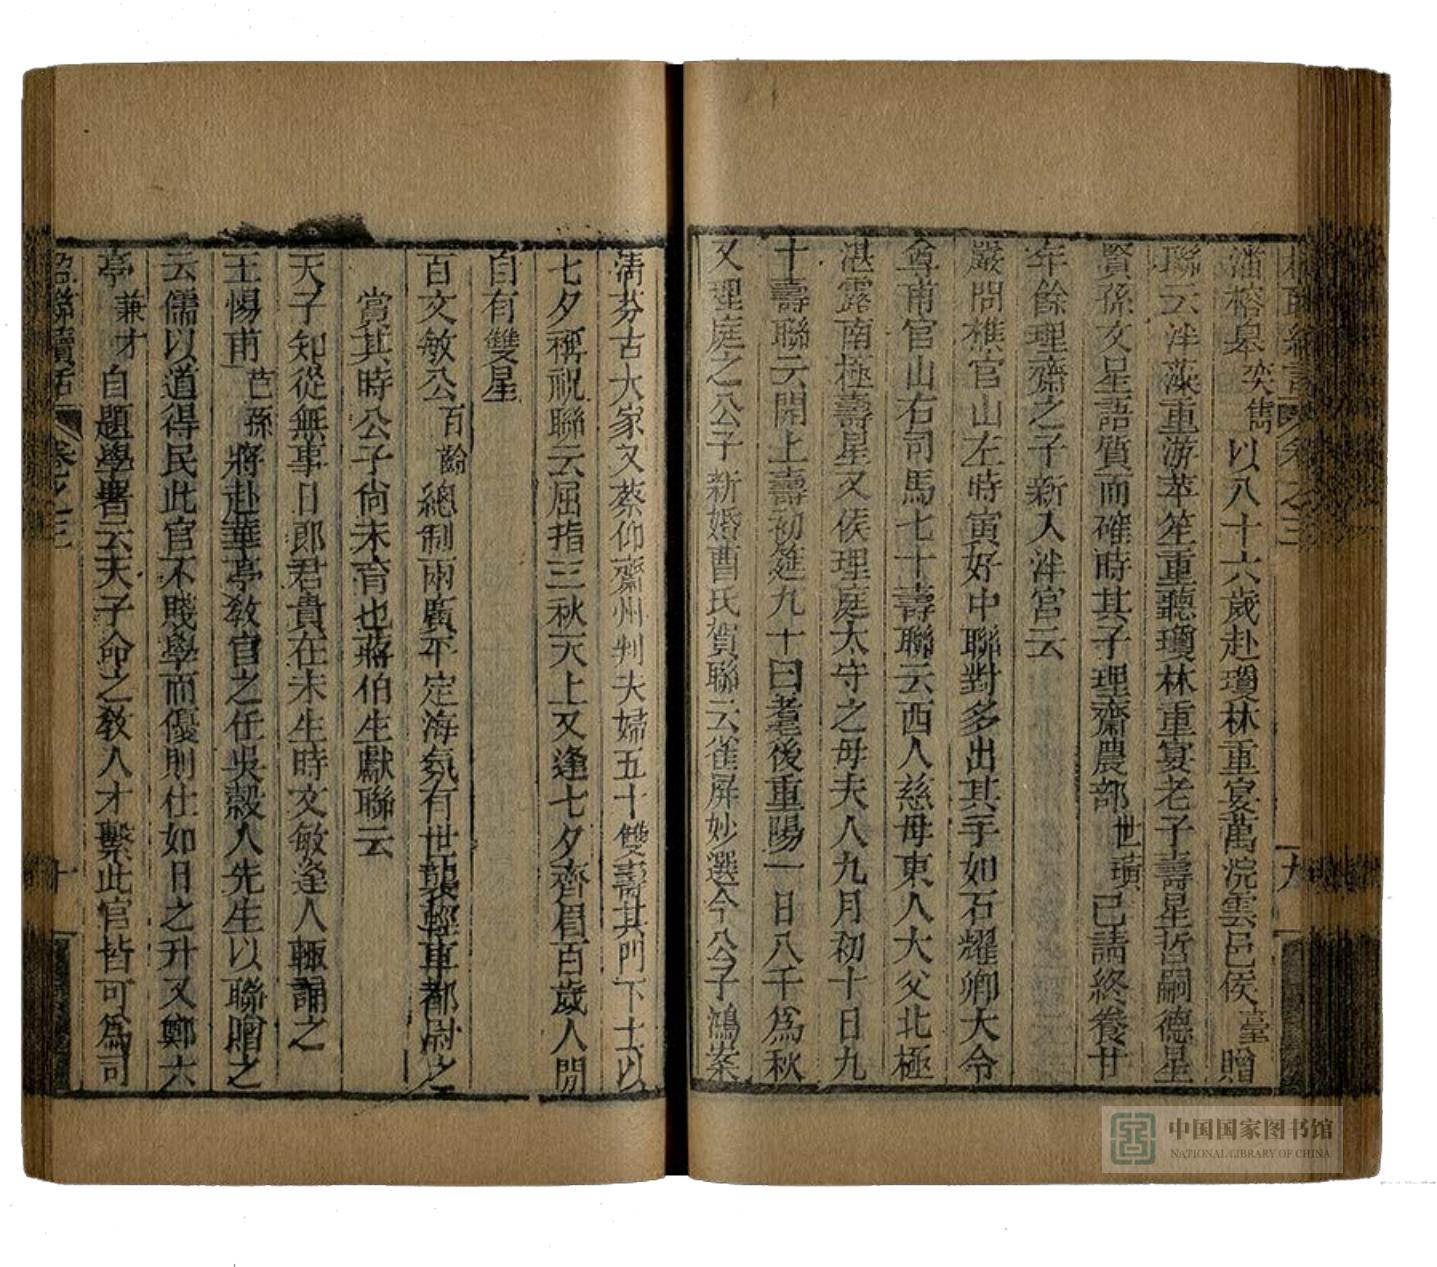 潘榕皋奕雋以八十六歲赴瓊林重宴萬浣雲邑侯臺贈
聯云泮藻重游苹笙重聽瓊林重宴老子壽星哲嗣德星
賢孫文星語質而確時其子理齋農部世璜已請終養廿
年餘理齋之子新入泮宮云
嚴問樵官山左時寅好中聯對多出其手如石耀卿大令
尊甫官山右司馬七十壽聯云西人慈母東人大父北極
湛露南極壽星又侯理庭太守之母夫人九月初十日九
十壽聯云開上壽初筵九十曰耄後重陽一日八千爲秋
又理庭之公子新婚曹氏賀聯云雀屏妙選今公子鴻案
清芬古大家又蔡仰齋州判夫婦五十雙壽其門下士以
七夕稱祝聯云屈指三秋天上又逢七夕齊眉百歲人間
自有雙星
百文敏公百齡總制兩廣平定海氛有世襲輕車都尉之
賞其時公子尙未育也蔣伯生獻聯云
天子知從無事日郎君貴在未生時文敏逢人輒誦之
王惕甫芑孫將赴華亭敎官之任吳穀人先生以聯贈之
云儒以道得民此官不賤學而優則仕如日之升又鄭六
亭兼才自題學署云天子命之敎人才繫此官皆可爲可
楹聯續話 卷之三 十
中国国家图书馆
NATIONAL LIBRARY OF CHINA